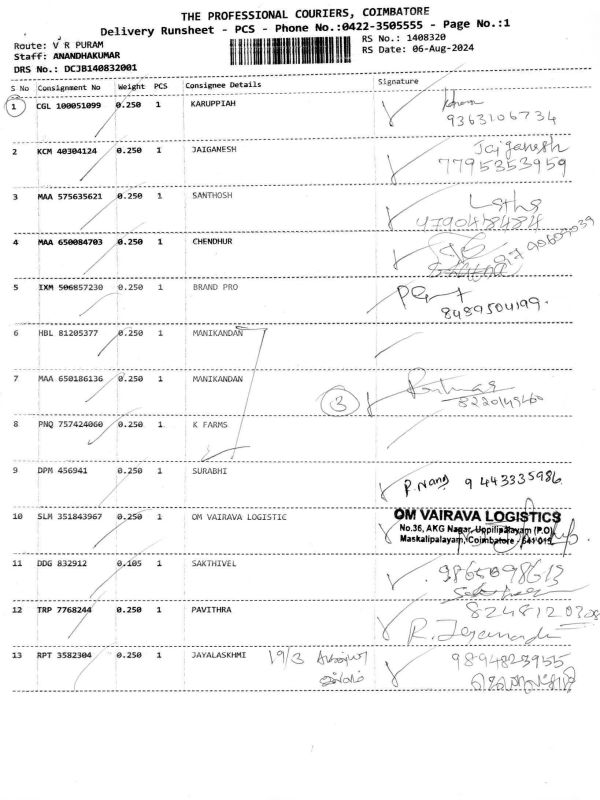 THE PROFESSIONAL COURIERS, COIMBATORE
Delivery Runsheet - PCS - Phone No.:0422-3505555 - Page No.:1
Route: V R PURAM
RS No.: 1408320
Staff: ANANDHAKUMAR
RS Date: 06-Aug-2024
DRS No.: DCJB140832001
S No Consignment No Weight PCS Consignee Details Signature
1 CGL 100051099 0.250 1 KARUPPIAH
9363106734
2 KCM 40304124 0.250 1 JAIGANESH Jaiganesh
7795353959
3 MAA 575635621 0.250 1 SANTHOSH Latha
4790418484
4 MAA 650084703 0.250 1 CHENDHUR
5 IXM 506857230 0.250 1 BRAND PRO
8489504199.
6 HBL 81205377 0.250 1 MANIKANDAN
7 MAA 650186136 0.250 1 MANIKANDAN
3
8220149460
8 PNQ 757424060 0.250 1 K FARMS
9 DPM 456941 0.250 1 SURABHI P. Nand 9443335986
10 SLM 351843967 0.250 1 OM VAIRAVA LOGISTIC
OM VAIRAVA LOGISTICS
No.36, AKG Nagar, Uppilipalayam (P.O)
Maskalipalayam, Coimbatore - 641 015
11 DDG 832912 0.105 1 SAKTHIVEL
12 TRP 7768244 0.250 1 PAVITHRA
13 RPT 3582304 0.250 1 JAYALASKHMI 19/3
9894823955